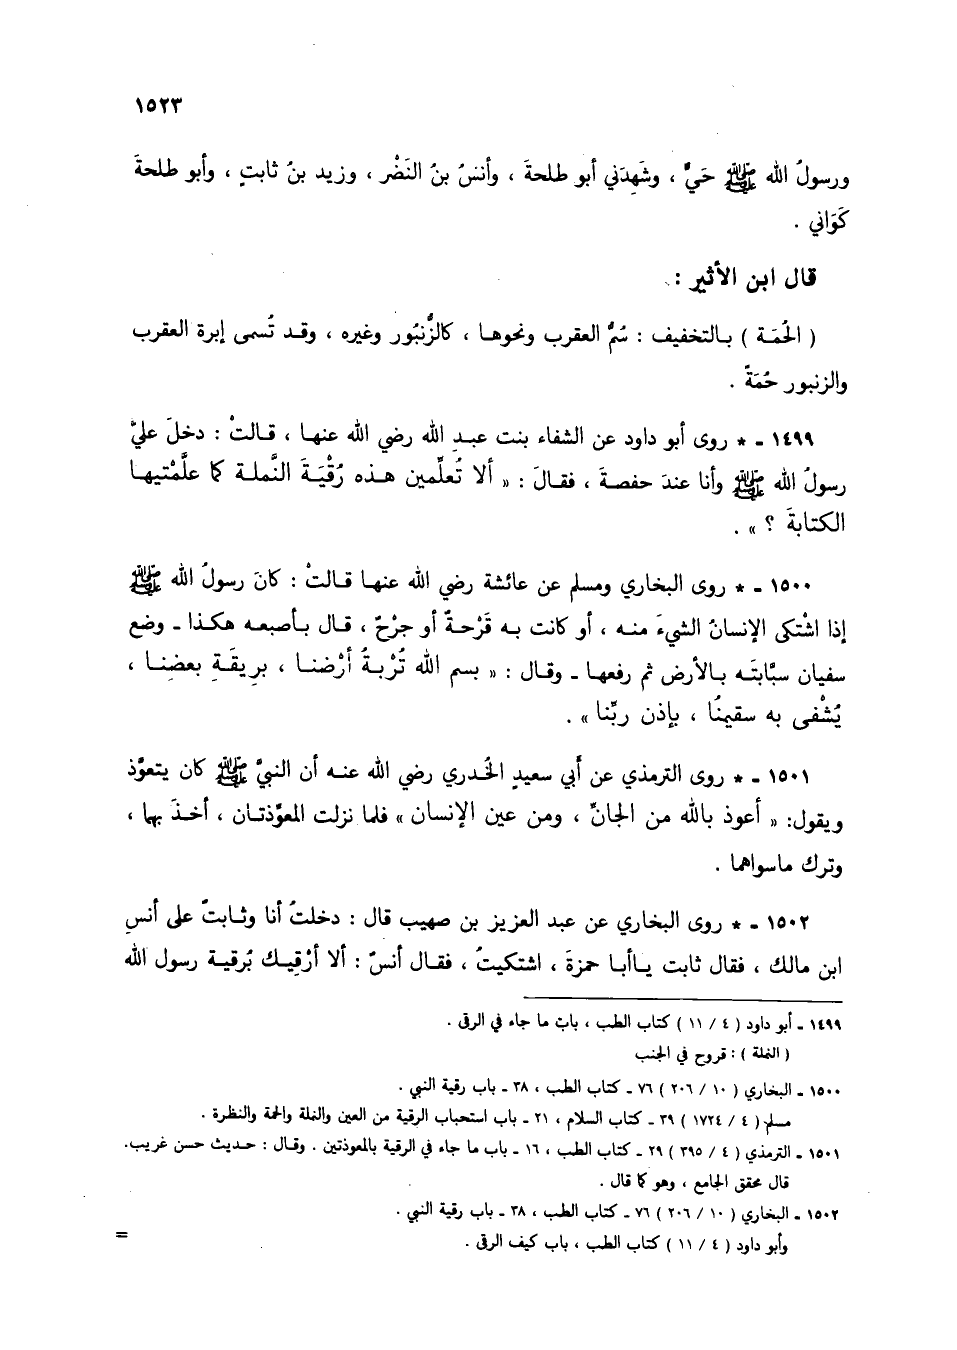 ١٥٢٣
ورسولُ الله ﷺ حَيٌّ ، وشَهِدَني أبو طلحةَ ، وأنسُ بنُ النَضْر ، وزيد بنُ ثابتٍ ، وأبو طلحةَ
كَوَاني .
قال ابن الأثير :
( الحُمَة ) بالتخفيف : سُمُّ العقرب ونحوها ، كالزُّنبُور وغيره ، وقد تُسمى إبرة العقرب
والزنبور حُمَةً .
١٤٩٩ - * روى أبو داود عن الشفاء بنت عبد الله رضي الله عنها ، قالتْ : دخلَ عليَّ
رسولُ الله ﷺ وأنا عندَ حفصةَ ، فقالَ : « ألا تُعلِّمين هذه رُقْيَةَ النَّملة كما علَّمْتيها
الكتابةَ ؟ » .
١٥٠٠ - * روى البخاري ومسلم عن عائشة رضي الله عنها قالتْ : كانَ رسولُ الله ﷺ
إذا اشْتكى الإنسانُ الشيءَ منه ، أو كانت به قَرْحةٌ أو جرْحٌ ، قال بأصبعه هكذا - وضع
سفيان سبَّابتَه بالأرض ثم رفعها - وقال : « بسم الله تُرْبةُ أرْضنا ، بريقَةِ بعضِنا ،
يُشْفى به سقيمُنا ، بإذن ربِّنا » .
١٥٠١ - * روى الترمذي عن أَبي سعيدٍ الخُدري رضي الله عنه أن النبيَّ ﷺ كان يتعوَّذ
ويقول: « أعوذ بالله من الجانِّ ، ومن عين الإنسان » فلما نزلت المعوِّذتان ، أخذَ بها ،
وترك ماسواهما .
١٥٠٢ - * روى البخاري عن عبد العزيز بن صهيب قال : دخلتُ أنا وثابتٌ على أنسِ
ابن مالك ، فقال ثابت ياأبا حمزةَ ، اشتكيتُ ، فقال أنسٌ : ألا أرْقِيك بُرقية رسول الله
١٤٩٩ - أبو داود ( ٤ / ١١ ) كتاب الطب ، باب ما جاء في الرقى .
( النملة ) : قروح في الجنب
١٥٠٠ - البخاري ( ١٠ / ٢٠٦ ) ٧٦ - كتاب الطب ، ٣٨ - باب رقية النبي .
مسلم ( ٤ / ١٧٢٤ ) ٣٩ - كتاب السلام ، ٢١ - باب استحباب الرقية من العين والنملة والحمة والنظرة .
١٥٠١ - الترمذي ( ٤ / ٣٩٥ ) ٢٩ - كتاب الطب ، ١٦ - باب ما جاء في الرقية بالمعوذتين . وقال : حديث حسن غريب.
قال محقق الجامع ، وهو كما قال .
١٥٠٢ - البخاري ( ١٠ / ٢٠٦ ) ٧٦ - كتاب الطب ، ٣٨ - باب رقية النبي .
وأبو داود ( ٤ / ١١ ) كتاب الطب ، باب كيف الرقى .
=